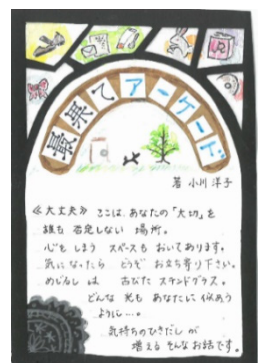 最果てアーケード
著 小川 洋子
≪大丈夫≫ ここは、あなたの「大切」を
誰も 否定しない 場所。
心を しまう スペースも おいてあります。
気に なったら どうぞ お立ち寄り下さい。
めじるし は 古びた ステンドグラス。
どんな 光も あなたに 似あう
ように…。
気持ちのひきだし が
増える そんなお話です。